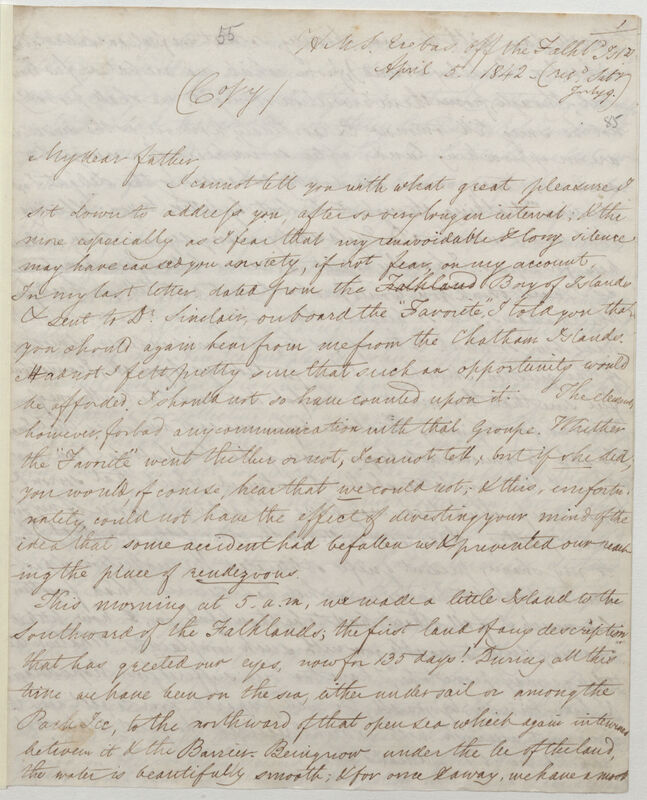 1
55
H.M.S. Erebus off the Falkd. Isds.
April 5. 1842 - (recd. Saty
July 9.)
(Copy)
85
My dear father
I cannot tell you with what great pleasure I
sit down to address you, after so very long an interval; & the
more especially as I fear that my unavoidable & long silence
may have caused you anxiety, if not fear, on my account.
In my last letter dated from the Falkland Bay of Islands
& sent to Dr. Sinclair, on board the "Favorite", I told you that
you should again hear from me from the Chatham Islands.
Had not I felt pretty sure that such an opportunity would
be afforded, I should not so have counted upon it. The elements
however, forbad any communication with that Groupe. Whether
the "Favorite" went thither or not, I cannot tell; but if she did,
you would of course, hear that we could not; & this, unfortu-
nately, could not have the effect of divesting your mind of the
idea that some accident had befallen us & prevented our reach-
ing the place of rendezvous.
This morning at 5. a.m, we made a little Island to the
Southward of the Falklands; the first land of any description
that has greeted our eyes, now for 135 days! During all this
time we have been on the sea, either under sail or among the
Pack Ice, to the northward of that open sea which again intervenes
between it & the Barrier. Being now under the lee of the land,
the water is beautifully smooth; & for once & away, we have a